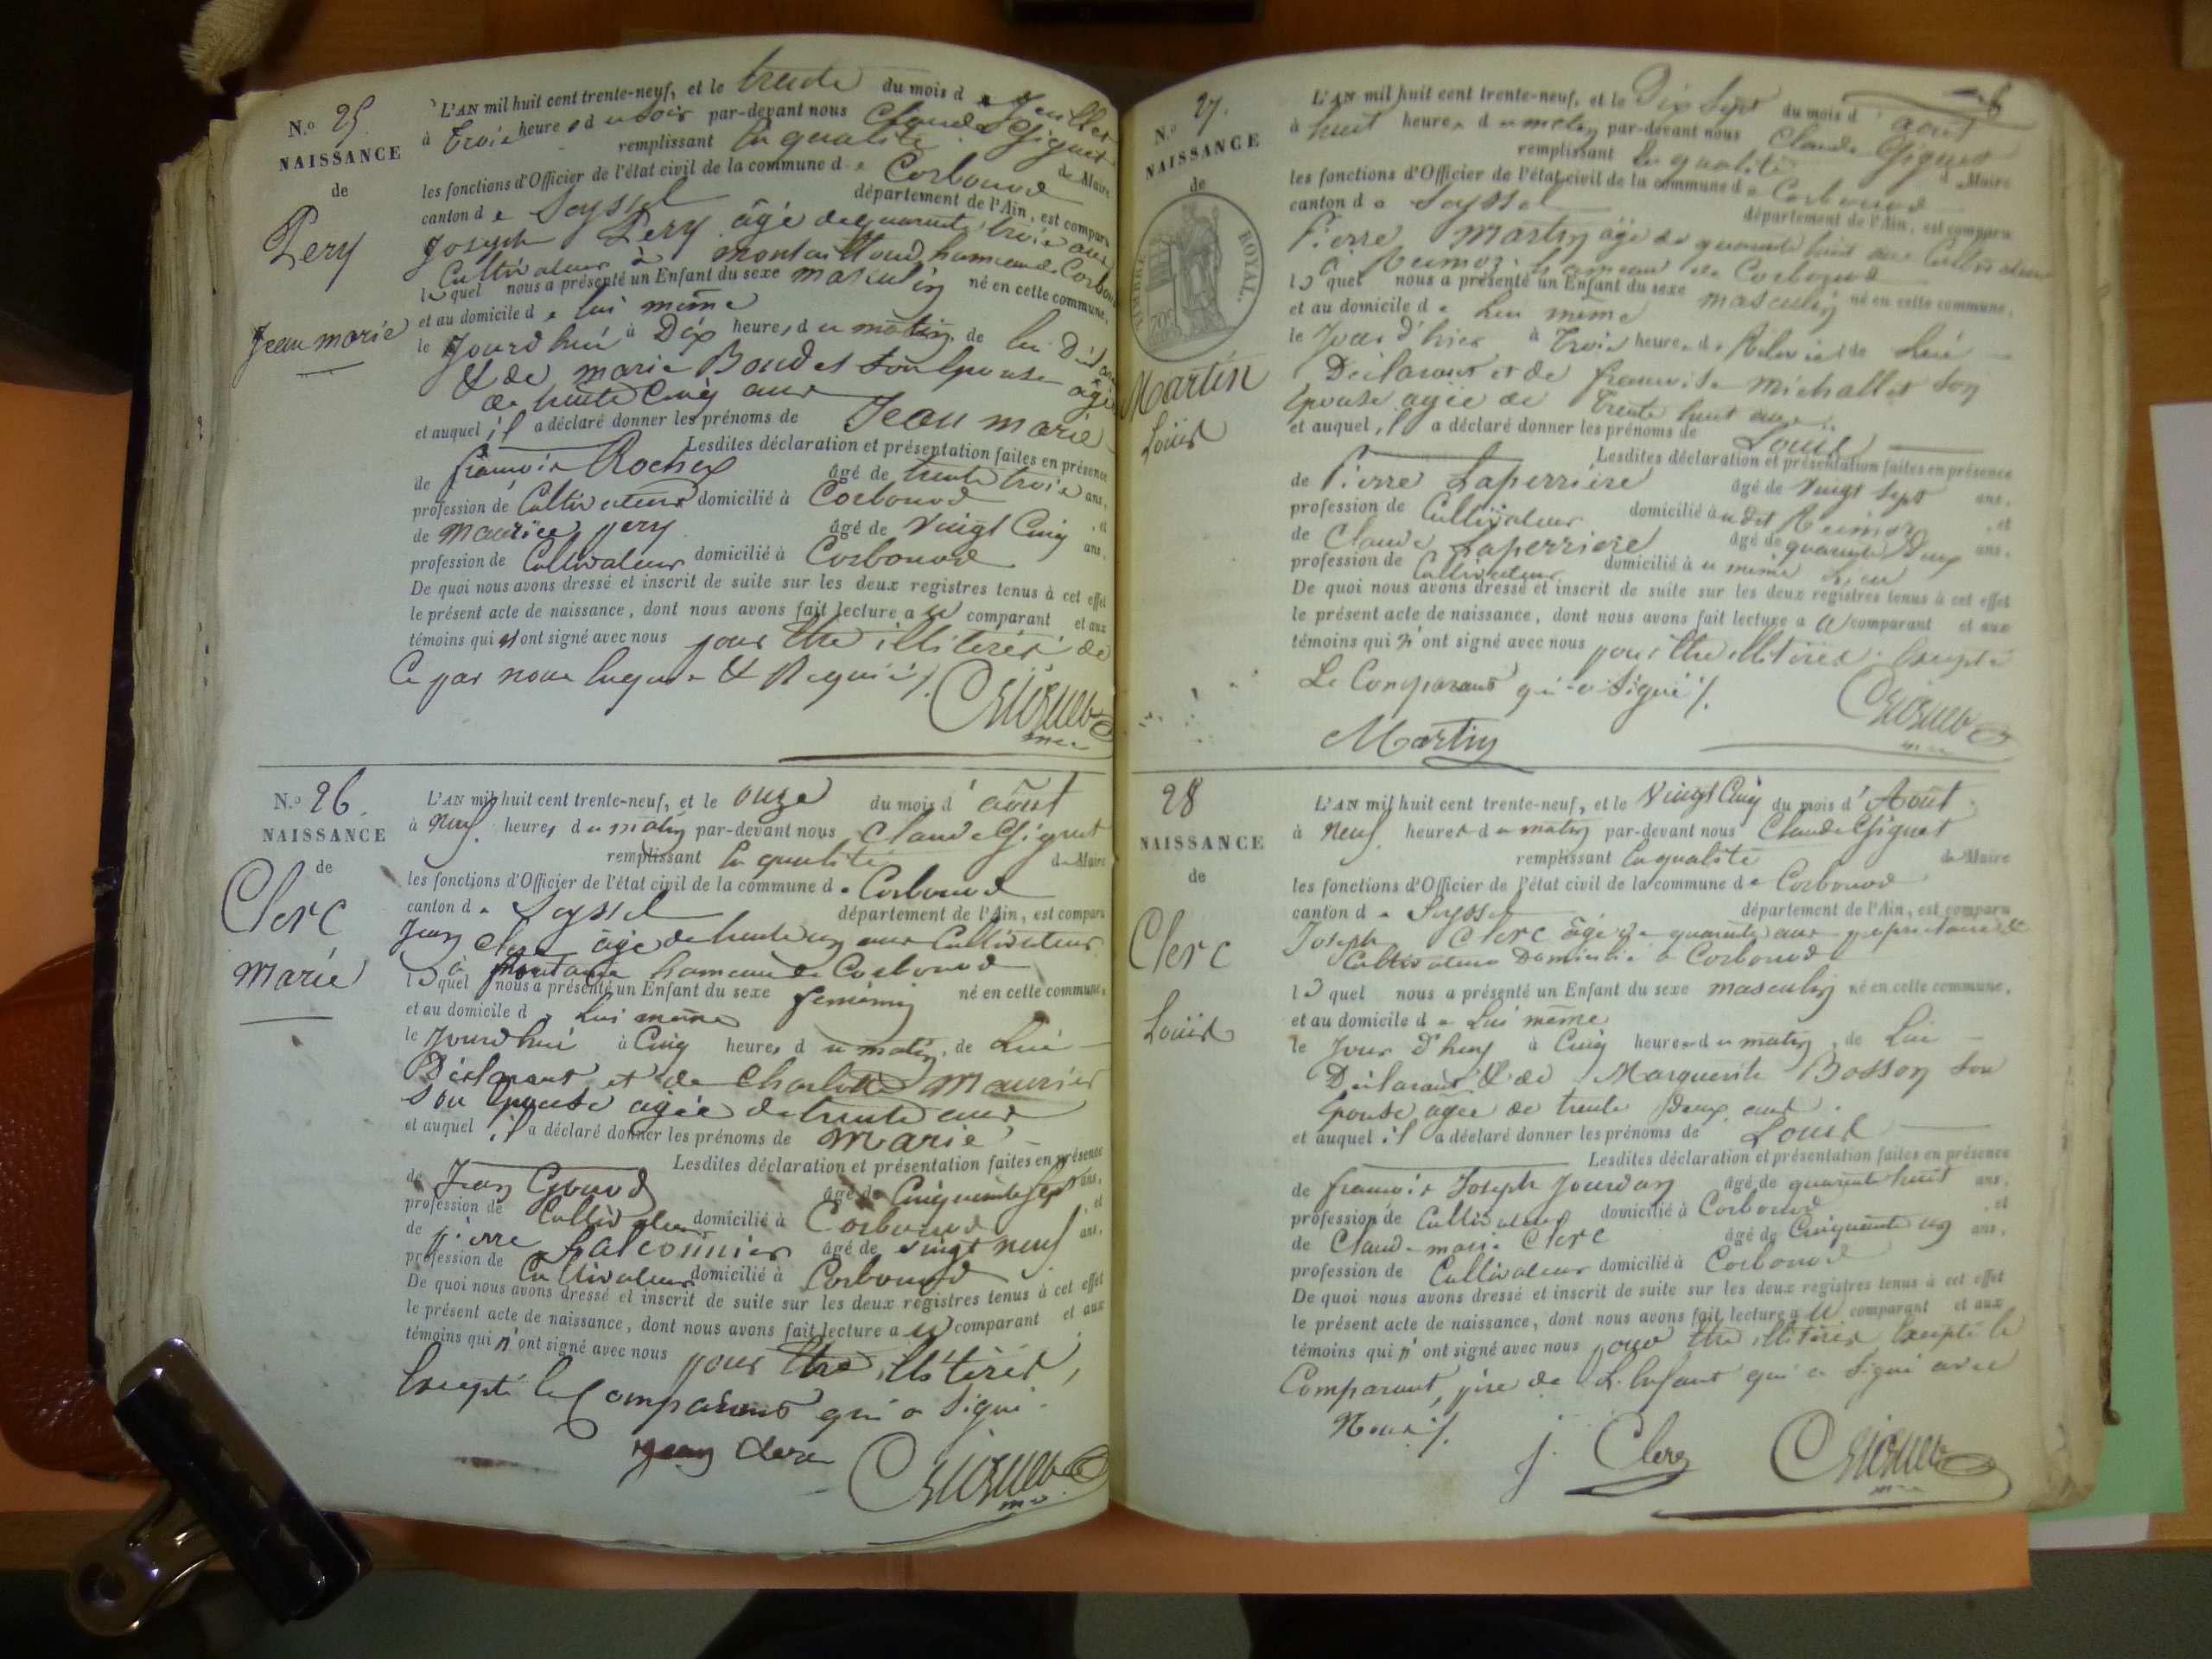 N.o 25.
NAISSANCE
de
Pery
Jean marie
L'AN mil huit cent trente-neuf, et le trente du mois de Juillet
à trois heures du soir par-devant nous Claude Giguet
remplissant la qualité de Maire
les fonctions d'Officier de l'état civil de la commune de Corbonod
canton de Seyssel département de l'Ain, est comparu
Joseph Pery âgé de quarante trois ans
Cultivateur à hameau de Corbonod
lequel nous a présenté un Enfant du sexe masculin né en cette commune,
et au domicile de lui même
le Jourd'hui à Dix heures du matin, de lui Déclarant
& de marie Boudet son épouse âgée
de trente Cinq ans
et auquel il a déclaré donner les prénoms de Jean marie
Lesdites déclaration et présentation faites en présence
de françois Rochex âgé de trente trois ans,
profession de Cultivateur domicilié à Corbonod , et
de Maurice pery âgé de Vingt Cinq ans,
profession de Cultivateur domicilié à Corbonod
De quoi nous avons dressé et inscrit de suite sur les deux registres tenus à cet effet
le présent acte de naissance, dont nous avons fait lecture au comparant et aux
témoins qui n'ont signé avec nous pour être illitérés de
Ce par nous Enquis & Requis ./.
Giguet
N.o 26.
NAISSANCE
de
Clerc
Marie
L'AN mil huit cent trente-neuf, et le onze du mois d'août
à Neuf heures du matin par-devant nous Claude Giguet
remplissant la qualité de Maire
les fonctions d'Officier de l'état civil de la commune de Corbonod
canton de Seyssel département de l'Ain, est comparu
Jean Clerc âgé de trente un ans Cultivateur
à hameau de Corbonod
lequel nous a présenté un Enfant du sexe feminin né en cette commune,
et au domicile de lui même
le Jourd'hui à Cinq heures du matin, de Lui
Déclarant et de Charlotte Maurier
son épouse agée de trente ans
et auquel il a déclaré donner les prénoms de Marie
Lesdites déclaration et présentation faites en présence
de Jean âgé de Cinquante sept ans,
profession de Cultivateur domicilié à Corbonod , et
de pierre Falconnier âgé de vingt neuf ans,
profession de Cultivateur domicilié à Corbonod
De quoi nous avons dressé et inscrit de suite sur les deux registres tenus à cet effet
le présent acte de naissance, dont nous avons fait lecture au comparant et aux
témoins qui n'ont signé avec nous pour être illitérés,
Excepté le Comparant qui a signé.
Jean Clerc Giguet
N.o 27.
NAISSANCE
de
TIMBRE ROYAL.
Martin
Louis
L'AN mil huit cent trente-neuf, et le Dix Sept du mois d'août
à huit heures du matin par-devant nous Claude Giguet
remplissant la qualité de Maire
les fonctions d'Officier de l'état civil de la commune de Corbonod
canton de Seyssel département de l'Ain, est comparu
Pierre Martin âgé de quarante huit ans Cultivateur
à hameau de Corbonod
lequel nous a présenté un Enfant du sexe masculin né en cette commune,
et au domicile de Lui même
le Jour d'hier à trois heures de Relevée de Lui
Déclarant et de françoise Michallet son
épouse agée de trente huit ans
et auquel il a déclaré donner les prénoms de Louis
Lesdites déclaration et présentation faites en présence
de Pierre Laperriere âgé de Vingt Sept ans,
profession de Cultivateur domicilié au dit , et
de Claude Laperriere âgé de quarante Deux ans,
profession de Cultivateur domicilié au même Lieu
De quoi nous avons dressé et inscrit de suite sur les deux registres tenus à cet effet
le présent acte de naissance, dont nous avons fait lecture au comparant et aux
témoins qui n'ont signé avec nous pour être illitérés. Excepté
Le Comparant qui a signé ./.
Martin Giguet
28
NAISSANCE
de
Clerc
Louis
L'AN mil huit cent trente-neuf, et le Vingt Cinq du mois d'Août
à Neuf heures du matin par-devant nous Claude Giguet
remplissant la qualité de Maire
les fonctions d'Officier de l'état civil de la commune de Corbonod
canton de Seyssel département de l'Ain, est comparu
Joseph Clerc âgé de quarante ans propriétaire &
Cultivateur Domicilié à Corbonod
lequel nous a présenté un Enfant du sexe masculin né en cette commune,
et au domicile de Lui même
le Jour d'huy à Cinq heures du matin, de Lui
Déclarant & de Marguerite Bosson son
épouse agée de trente Deux ans.
et auquel il a déclaré donner les prénoms de Louis
Lesdites déclaration et présentation faites en présence
de françois Joseph Jourdan âgé de quarante huit ans,
profession de Cultivateur domicilié à Corbonod , et
de Claude marie Clerc âgé de Cinquante un ans,
profession de Cultivateur domicilié à Corbonod
De quoi nous avons dressé et inscrit de suite sur les deux registres tenus à cet effet
le présent acte de naissance, dont nous avons fait lecture au comparant et aux
témoins qui n'ont signé avec nous pour être illitérés Excepté le
Comparant, père de L'Enfant qui a signé avec
Nous ./.
j. Clerc Giguet